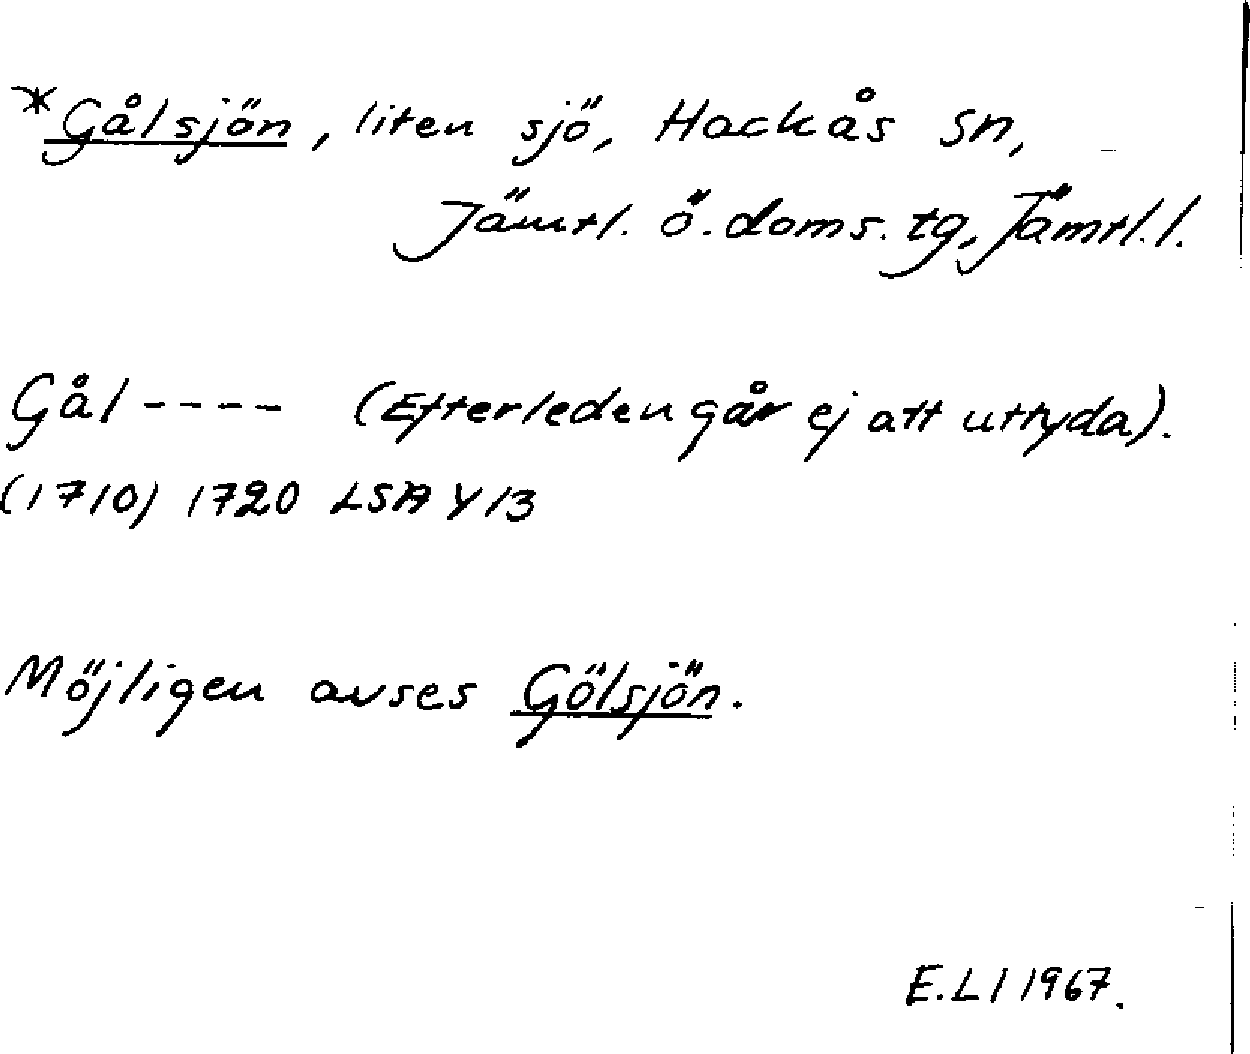 *Gålsjön, liten sjö, Hackås sn,
Jämtl. ö. doms. tg, Jämtl. l.
Gål---- (Efterleden går ej att uttyda).
(1710) 1720 LSA Y 13
Möjligen avses Gölsjön.
E.L I 1967.